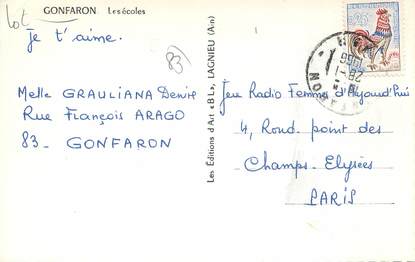 Lot
GONFARON Les écoles
Je t'aime.
83
Melle GRAULIANA Denise
Rue François ARAGO
83 - GONFARON
Les Editions d'Art «B L», LAGNIEU (Ain)
0,25
Jeu Radio Femmes d'Aujourd'hui
4, Rond-point des
Champs-Elysées
PARIS